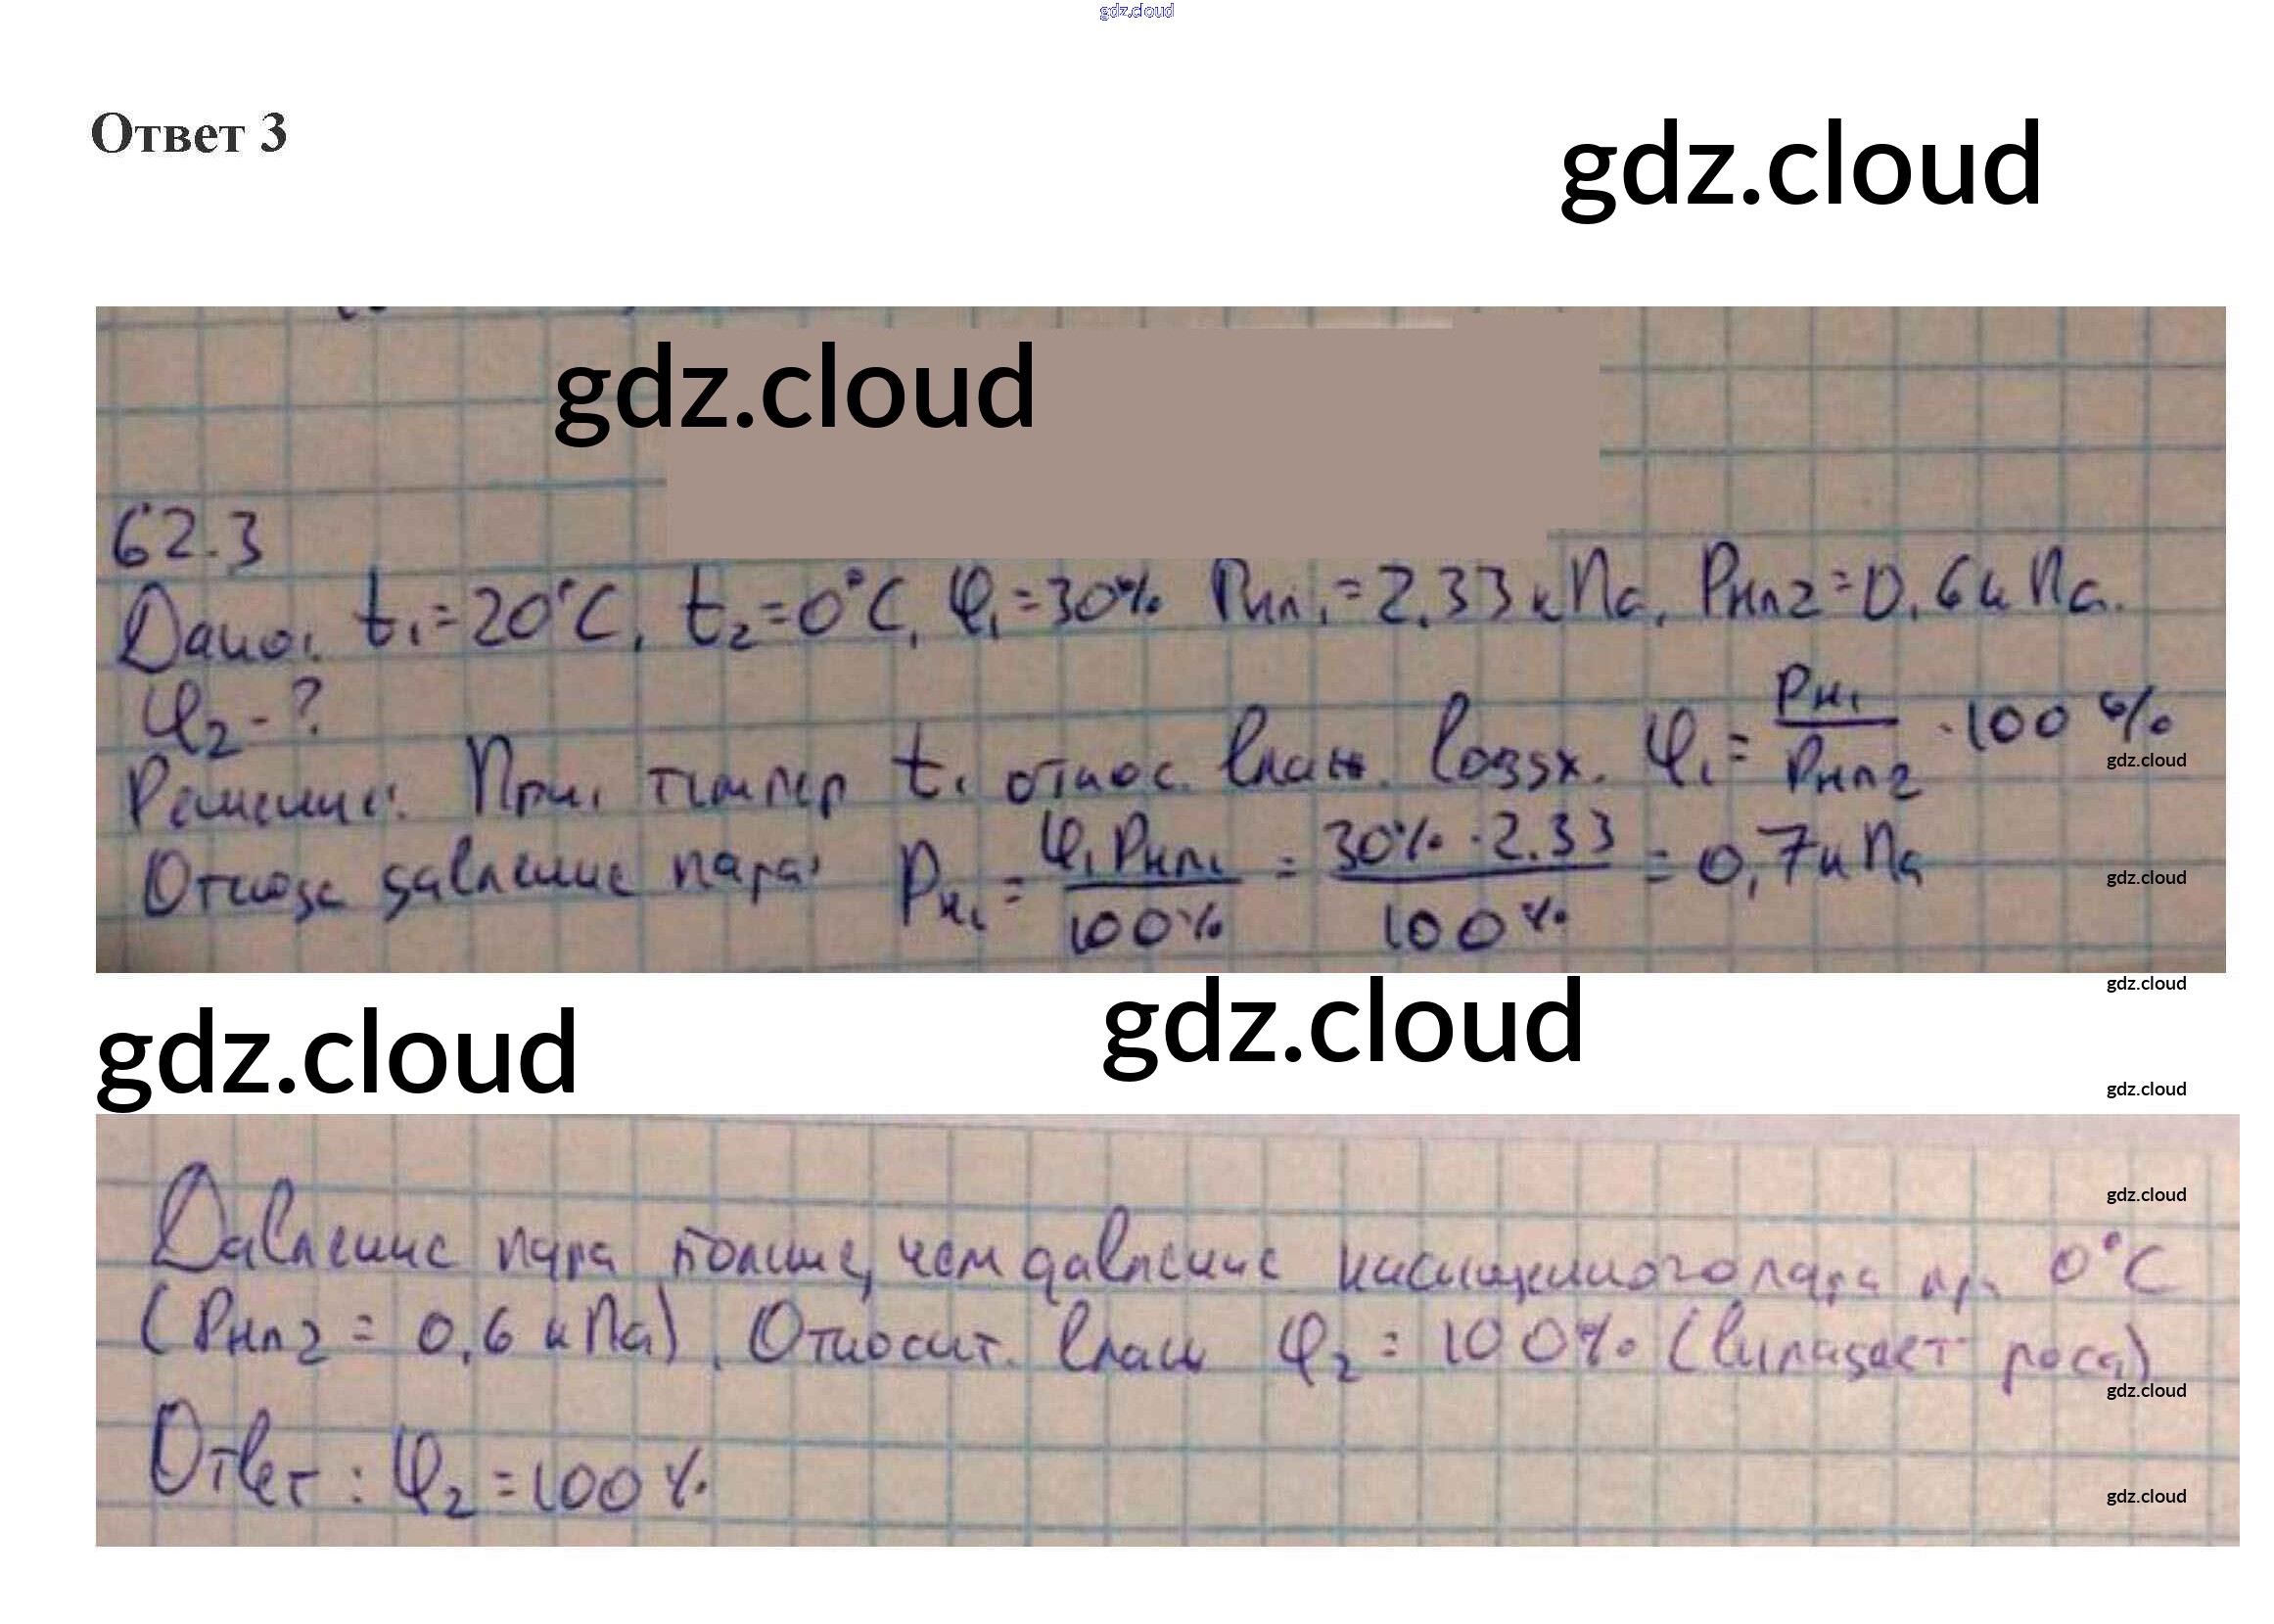 gdz.cloud
Ответ 3
gdz.cloud
gdz.cloud
62.3
Дано: t₁=20°C, t₂=0°C, φ₁=30% Pнп₁=2.33 кПа, Pнп2=0,6 кПа.
φ₂-?
Решение: При темпер t₁ относ. влаж. возух. φ₁ = Pн₁/Pнп2 · 100%
gdz.cloud
Отсюда давление пара: Pн₁ = φ₁Pнп₁/100% = 30% · 2.33/100% = 0,7 кПа
gdz.cloud
gdz.cloud
gdz.cloud
gdz.cloud
gdz.cloud
Давление пара больше, чем давление насыщенного пара при 0°C
gdz.cloud
(Pнп2 = 0,6 кПа). Относит. влаж φ₂ = 100% (выпадает роса)
gdz.cloud
Ответ: φ₂ = 100%
gdz.cloud